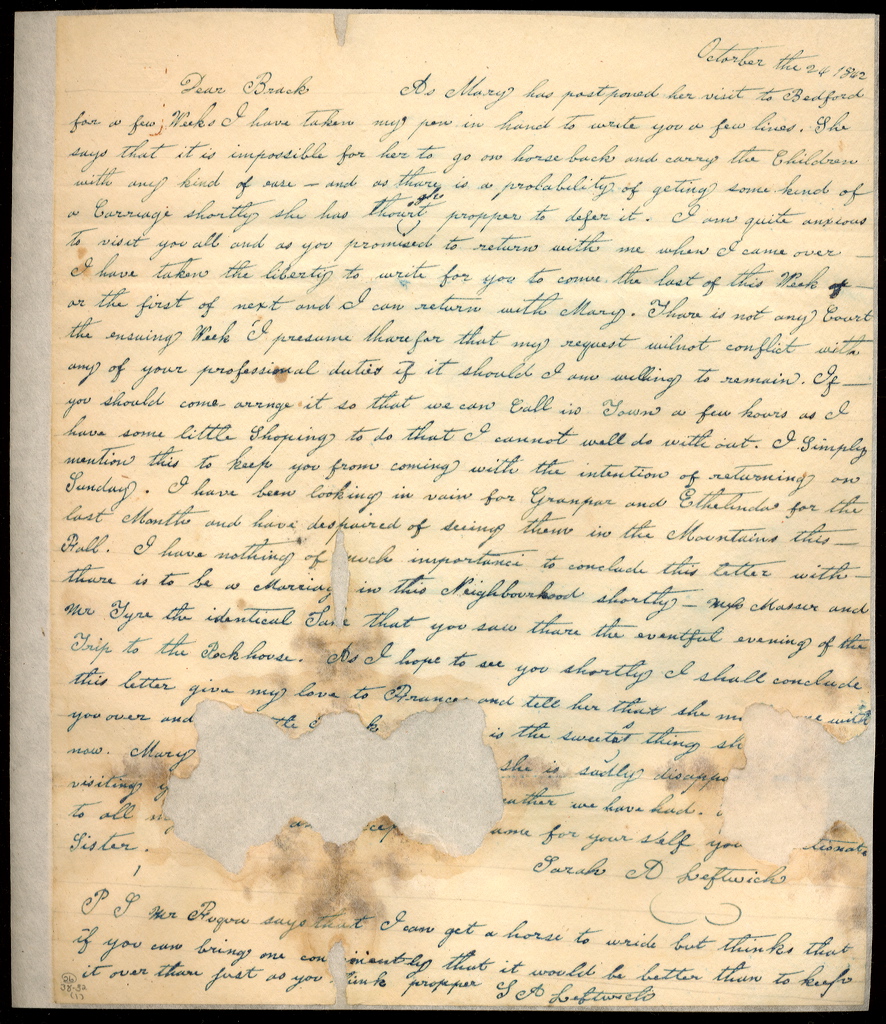 October the 24 1842
Dear Brack As Mary has postponed her visit to Bedford
for a few Weeks I have taken my pen in hand to write you a few lines. She
says that it is impossible for her to go on horse back and carry the Children
with any kind of ease – and as thare is a probability of geting some kind of
a Carriage shortly she has thought propper to defer it. I am quite anxious
to visit you all and as you promised to return with me when I came over –
I have taken the liberty to write for you to come the last of this Week
or the first of next and I can return with Mary. Thare is not any Court
the ensuing Week I presume tharefor that my request wilnot conflict with
any of your professional duties if it should I am willing to remain. If –
you should come arrnge it so that we can Call in Town a few hours as I
have some little Shoping to do that I cannot well do with out. I Simply
mention this to keep you from coming with the intention of returning on
Sunday. I have been looking in vain for Granpar and Ethelinda for the
last Month and have despaired of seeing them in the Mountains this –
Fall. I have nothing of much importance to conclude this letter with –
thare is to be a Marriag in this Neighbourhood shortly – Miss Masser and
Mr Tyre the identical that you saw thare the eventful evening of the
Trip to the Rockhouse. As I hope to see you shortly I shall conclude
this letter give my love to France and tell her that she with
you over and the is the sweetest thing
now. Mary she is sadly
visiting we have had.
to all for your self you
Sister.
Sarah A Leftwich
P S Mr Fuqua says that I can get a horse to wride but thinks that
if you can bring one that it would be better than to keep
it over thare just as you think propper S A Leftwich
(26)
38-32
(1)